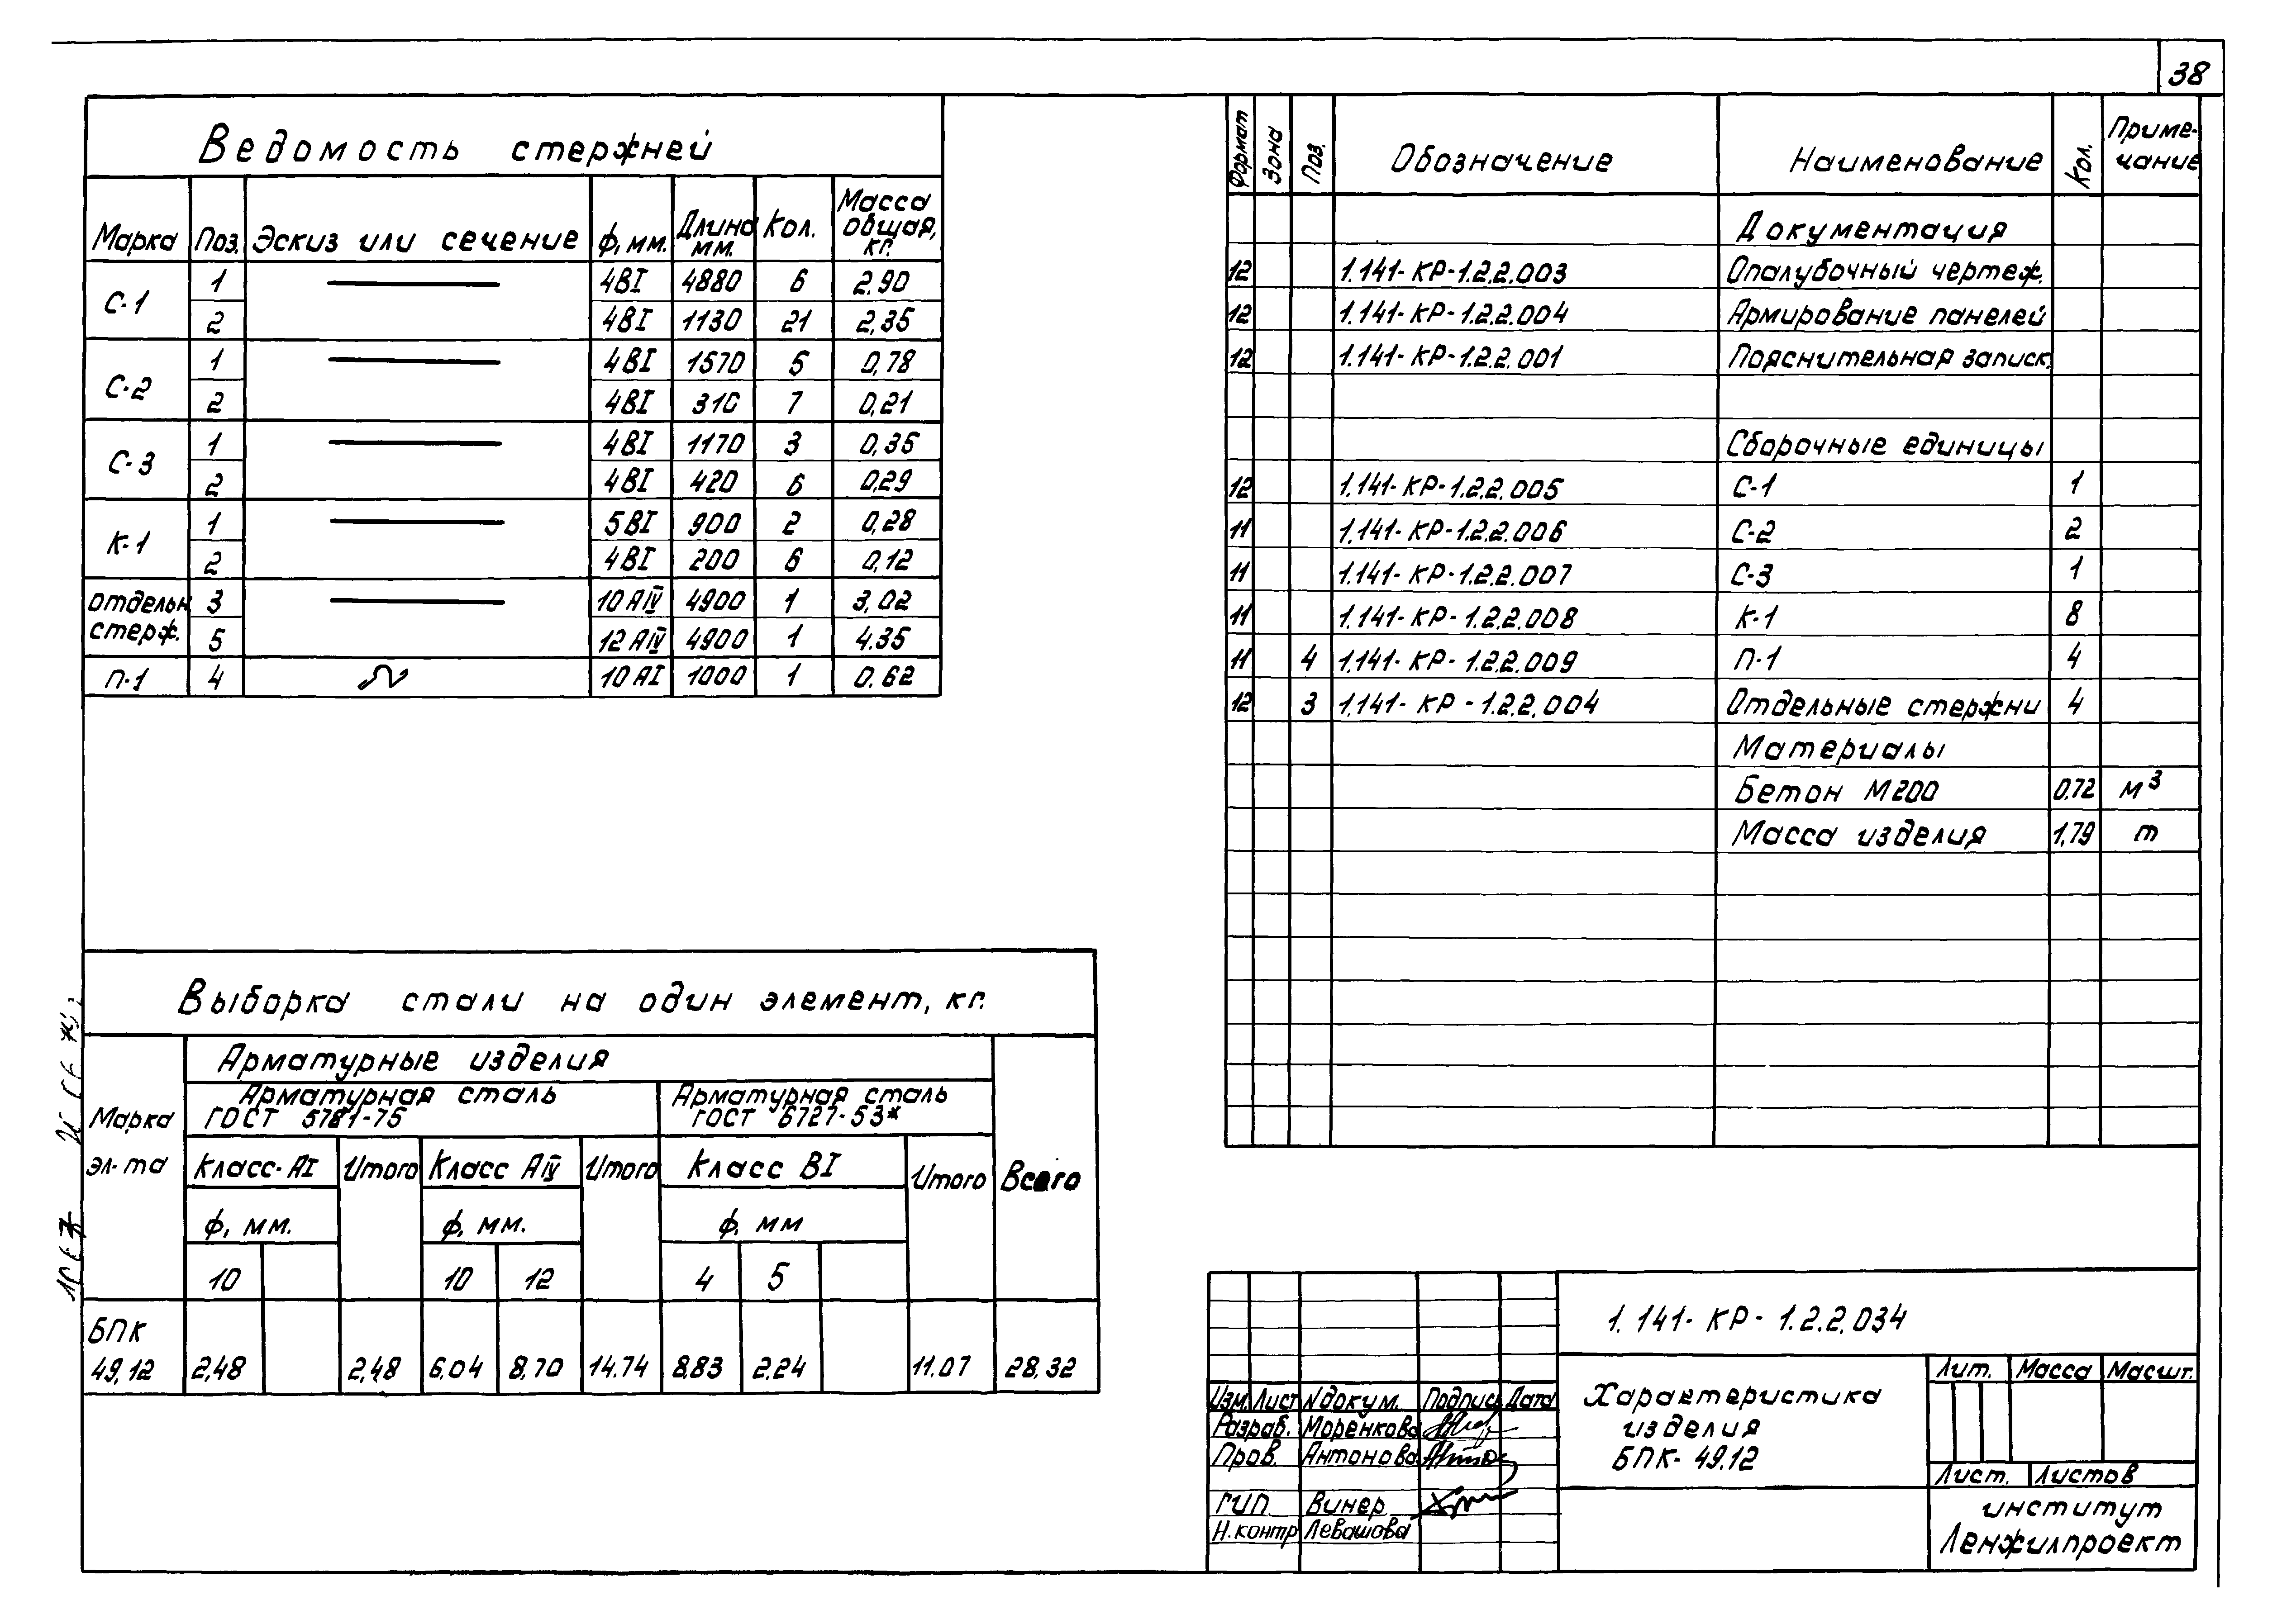 38
Ведомость стержней
Марка Поз. Эскиз или сечение ф, мм. Длина мм. Кол. Масса общая, кг.
С-1 1 4ВI 4880 6 2.90
2 4ВI 1130 21 2,35
С-2 1 4ВI 1570 5 0,78
2 4ВI 310 7 0,21
С-3 1 4ВI 1170 3 0,35
2 4ВI 420 6 0,29
К-1 1 5ВI 900 2 0,28
2 4ВI 200 6 0,12
отдельн стерж. 3 10 АIV 4900 1 3,02
5 12 АIV 4900 1 4.35
П-1 4 10 АI 1000 1 0.62
Выборка стали на один элемент, кг.
Марка эл-та
Арматурные изделия
Арматурная сталь ГОСТ 5781-75
Арматурная сталь ГОСТ 6727-53*
Класс-АI Итого Класс АIV Итого Класс ВI Итого Всего
ф, мм. ф, мм. ф, мм
10 10 12 4 5
БПК
49,12 2,48 2,48 6,04 8,70 14.74 8,83 2.24 11.07 28,32
Формат Зона Поз. Обозначение Наименование Кол. Примечание
Документация
12 1.141-КР-1.2.2.003 Опалубочный чертеж.
12 1.141-КР-1.2.2.004 Армирование панелей
12 1.141-КР-1.2.2.001 Пояснительная записк.
Сборочные единицы
12 1.141-КР-1.2.2.005 С-1 1
11 1.141-КР-1.2.2.006 С-2 2
11 1.141-КР-1.2.2.007 С-3 1
11 1.141-КР-1.2.2.008 К-1 8
11 4 1.141-КР-1.2.2.009 П-1 4
12 3 1.141-КР-1.2.2.004 Отдельные стержни 4
Материалы
Бетон М200 0,72 м³
Масса изделия 1,79 т
1.141-КР-1.2.2.034
Изм. Лист Nдокум. Подпись Дата
Разраб. Моренкова
Пров. Антонова
ГИП. Винер
Н.контр Левашова
Характеристика
изделия
БПК-49.12
Лит. Масса Масшт.
Лист. Листов
институт
Ленжилпроект